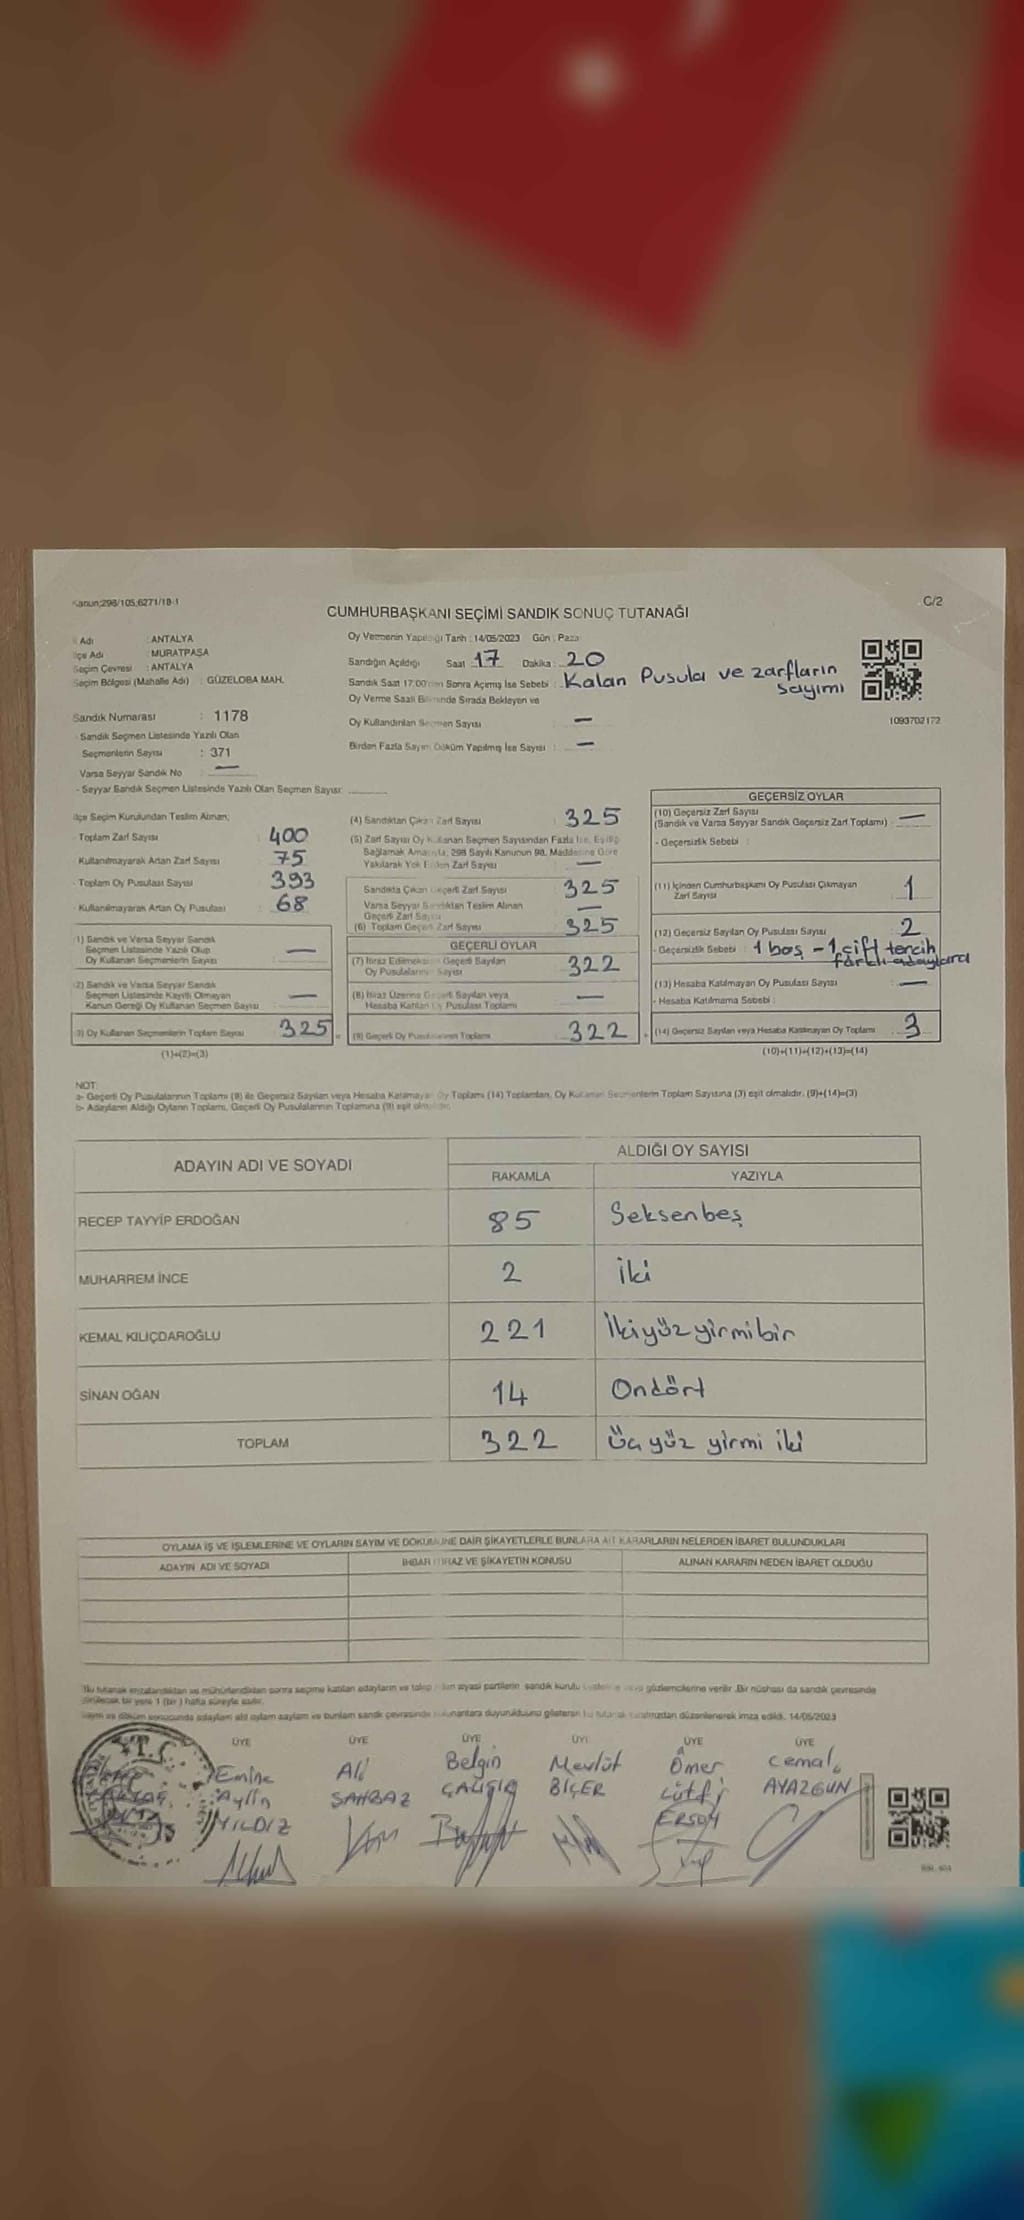 Kanun;298/105,6271/18-1
C/2
CUMHURBAŞKANI SEÇİMİ SANDIK SONUÇ TUTANAĞI
Adı : ANTALYA
İlçe Adı : MURATPAŞA
Seçim Çevresi : ANTALYA
Seçim Bölgesi (Mahalle Adı) : GÜZELOBA MAH.
Sandık Numarası : 1178
Sandık Seçmen Listesinde Yazılı Olan
Seçmenlerin Sayısı : 371
Varsa Seyyar Sandık No —
- Seyyar Sandık Seçmen Listesinde Yazılı Olan Seçmen Sayısı:
Oy Vermenin Yapıldığı Tarih : 14/05/2023 Gün : Pazar
Sandığın Açıldığı Saat 17 Dakika : 20
Sandık Saat 17:00'den Sonra Açılmış İse Sebebi : Kalan Pusula ve zarfların
sayımı
Oy Verme Saati Bitiminde Sırada Bekleyen ve
Oy Kullandırılan Seçmen Sayısı : —
Birden Fazla Sayım Döküm Yapılmış İse Sayısı : —
1093702172
İlçe Seçim Kurulundan Teslim Alınan;
- Toplam Zarf Sayısı : 400
- Kullanılmayarak Artan Zarf Sayısı : 75
- Toplam Oy Pusulası Sayısı : 393
- Kullanılmayarak Artan Oy Pusulası : 68
(1) Sandık ve Varsa Seyyar Sandık
Seçmen Listesinde Yazılı Olup
Oy Kullanan Seçmenlerin Sayısı —
(2) Sandık ve Varsa Seyyar Sandık
Seçmen Listesinde Kayıtlı Olmayan
Kanun Gereği Oy Kullanan Seçmen Sayısı —
(3) Oy Kullanan Seçmenlerin Toplam Sayısı 325
(1)+(2)=(3)
(4) Sandıktan Çıkan Zarf Sayısı : 325
(5) Zarf Sayısı Oy Kullanan Seçmen Sayısından Fazla İse, Eşitliği
Sağlamak Amacıyla, 298 Sayılı Kanunun 98. Maddesine Göre
Yakılarak Yok Edilen Zarf Sayısı —
Sandıkta Çıkan Geçerli Zarf Sayısı 325
Varsa Seyyar Sandıktan Teslim Alınan
Geçerli Zarf Sayısı —
(6) Toplam Geçerli Zarf Sayısı 325
GEÇERLİ OYLAR
(7) İtiraz Edilmeksizin Geçerli Sayılan
Oy Pusulalarının Sayısı 322
(8) İtiraz Üzerine Geçerli Sayılan veya
Hesaba Katılan Oy Pusulası Toplamı —
(9) Geçerli Oy Pusulalarının Toplamı 322
GEÇERSİZ OYLAR
(10) Geçersiz Zarf Sayısı
(Sandık ve Varsa Seyyar Sandık Geçersiz Zarf Toplamı) —
- Geçersizlik Sebebi :
(11) İçinden Cumhurbaşkanı Oy Pusulası Çıkmayan
Zarf Sayısı 1
(12) Geçersiz Sayılan Oy Pusulası Sayısı 2
- Geçersizlik Sebebi : 1 boş - 1 çift tercih
farklı adaylara
(13) Hesaba Katılmayan Oy Pusulası Sayısı —
- Hesaba Katılmama Sebebi :
(14) Geçersiz Sayılan veya Hesaba Katılmayan Oy Toplamı 3
(10)+(11)+(12)+(13)=(14)
NOT:
a- Geçerli Oy Pusulalarının Toplamı (9) ile Geçersiz Sayılan veya Hesaba Katılmayan Oy Toplamı (14) Toplamları, Oy Kullanan Seçmenlerin Toplam Sayısına (3) eşit olmalıdır. (9)+(14)=(3)
b- Adayların Aldığı Oyların Toplamı, Geçerli Oy Pusulalarının Toplamına (9) eşit olmalıdır.
ADAYIN ADI VE SOYADI
ALDIĞI OY SAYISI
RAKAMLA YAZIYLA
RECEP TAYYİP ERDOĞAN 85 Seksenbeş
MUHARREM İNCE 2 İki
KEMAL KILIÇDAROĞLU 221 İkiyüzyirmibir
SİNAN OĞAN 14 Ondört
TOPLAM 322 Üçyüz yirmi iki
OYLAMA İŞ VE İŞLEMLERİNE VE OYLARIN SAYIM VE DÖKÜMÜNE DAİR ŞİKAYETLERLE BUNLARA AİT KARARLARIN NELERDEN İBARET BULUNDUKLARI
ADAYIN ADI VE SOYADI İHBAR İTİRAZ VE ŞİKAYETİN KONUSU ALINAN KARARIN NEDEN İBARET OLDUĞU
Bu tutanak imzalandıktan ve mühürlendikten sonra seçime katılan adayların ve talep eden siyasi partilerin sandık kurulu üyelerine veya gözlemcilerine verilir. Bir nüshası da sandık çevresinde
görülecek bir yere 1 (bir) hafta süreyle asılır.
Sayım ve döküm sonucunda adayların aldığı oyların sayıları ve bunların sandık çevresinde bulunanlara duyurulduğunu gösteren bu tutanak tarafımızdan düzenlenerek imza edildi. 14/05/2023
ÜYE ÜYE ÜYE ÜYE ÜYE ÜYE
T.C.
Emine Aylin YILDIZ
Ali ŞAHBAZ
Belgin ÇALIŞIR
Mevlüt BİÇER
Ömer Lütfi ERSOY
Cemal AYAZGÜN